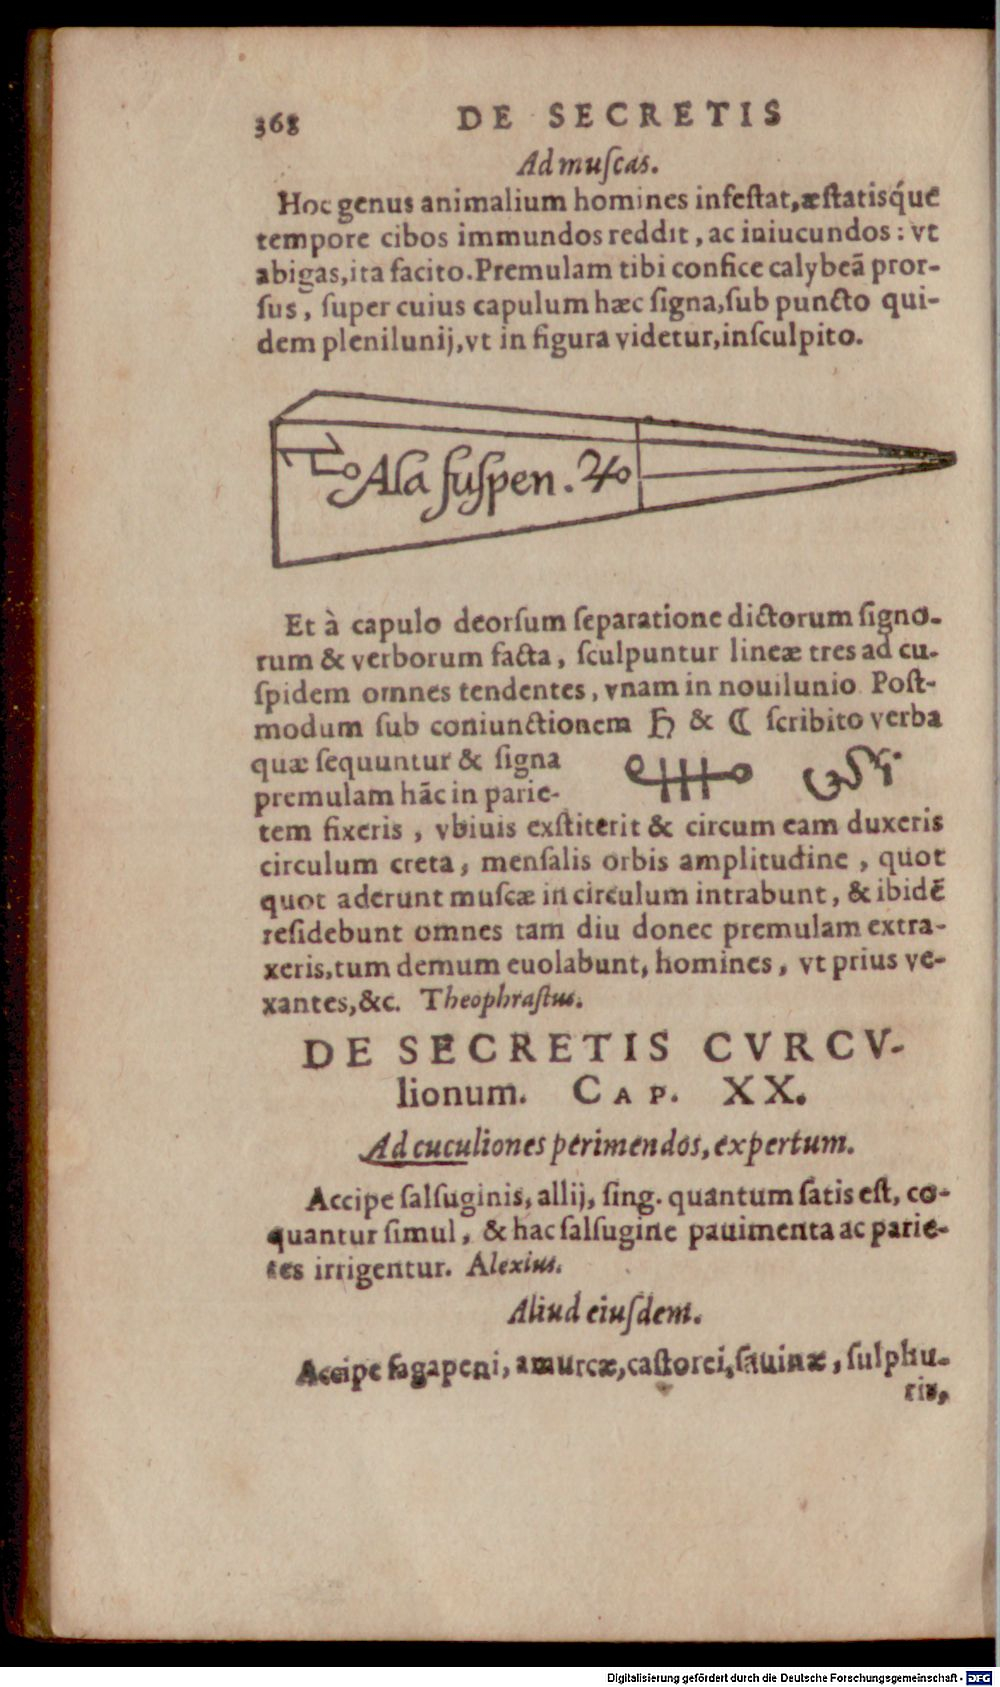 368 DE SECRETIS
Ad muſcas.
Hoc genus animalium homines infeſtat, æſtatisq́ue
tempore cibos immundos reddit, ac iniucundos: vt
abigas, ita facito. Premulam tibi confice calybeã pror-
ſus, ſuper cuius capulum hæc ſigna, ſub puncto qui-
dem plenilunij, vt in figura videtur, inſculpito.
Ala ſuſpen. ♃o
Et à capulo deorſum ſeparatione dictorum ſigno-
rum & verborum facta, ſculpuntur lineæ tres ad cu-
ſpidem omnes tendentes, vnam in nouilunio Poſt-
modum ſub coniunctionem ♄ & ☾ ſcribito verba
quæ ſequuntur & ſigna
premulam hãc in parie-
tem fixeris, vbiuis exſtiterit & circum eam duxeris
circulum creta, menſalis orbis amplitudine, quot
quot aderunt muſcæ in circulum intrabunt, & ibidẽ
reſidebunt omnes tam diu donec premulam extra-
xeris, tum demum euolabunt, homines, vt prius ve-
xantes, &c. Theophraſtus.
DE SECRETIS CVRCV-
lionum. CAP. XX.
Ad cuculiones perimendos, expertum.
Accipe ſalſuginis, allij, ſing. quantum ſatis eſt, co-
quantur ſimul, & hac ſalſugine pauimenta ac parie-
tes irrigentur. Alexius.
Aliud eiuſdem.
Accipe ſagapeni, amurcæ, caſtorei, ſauinæ, ſulphu-
ris,
Digitalisierung gefördert durch die Deutsche Forschungsgemeinschaft - DFG